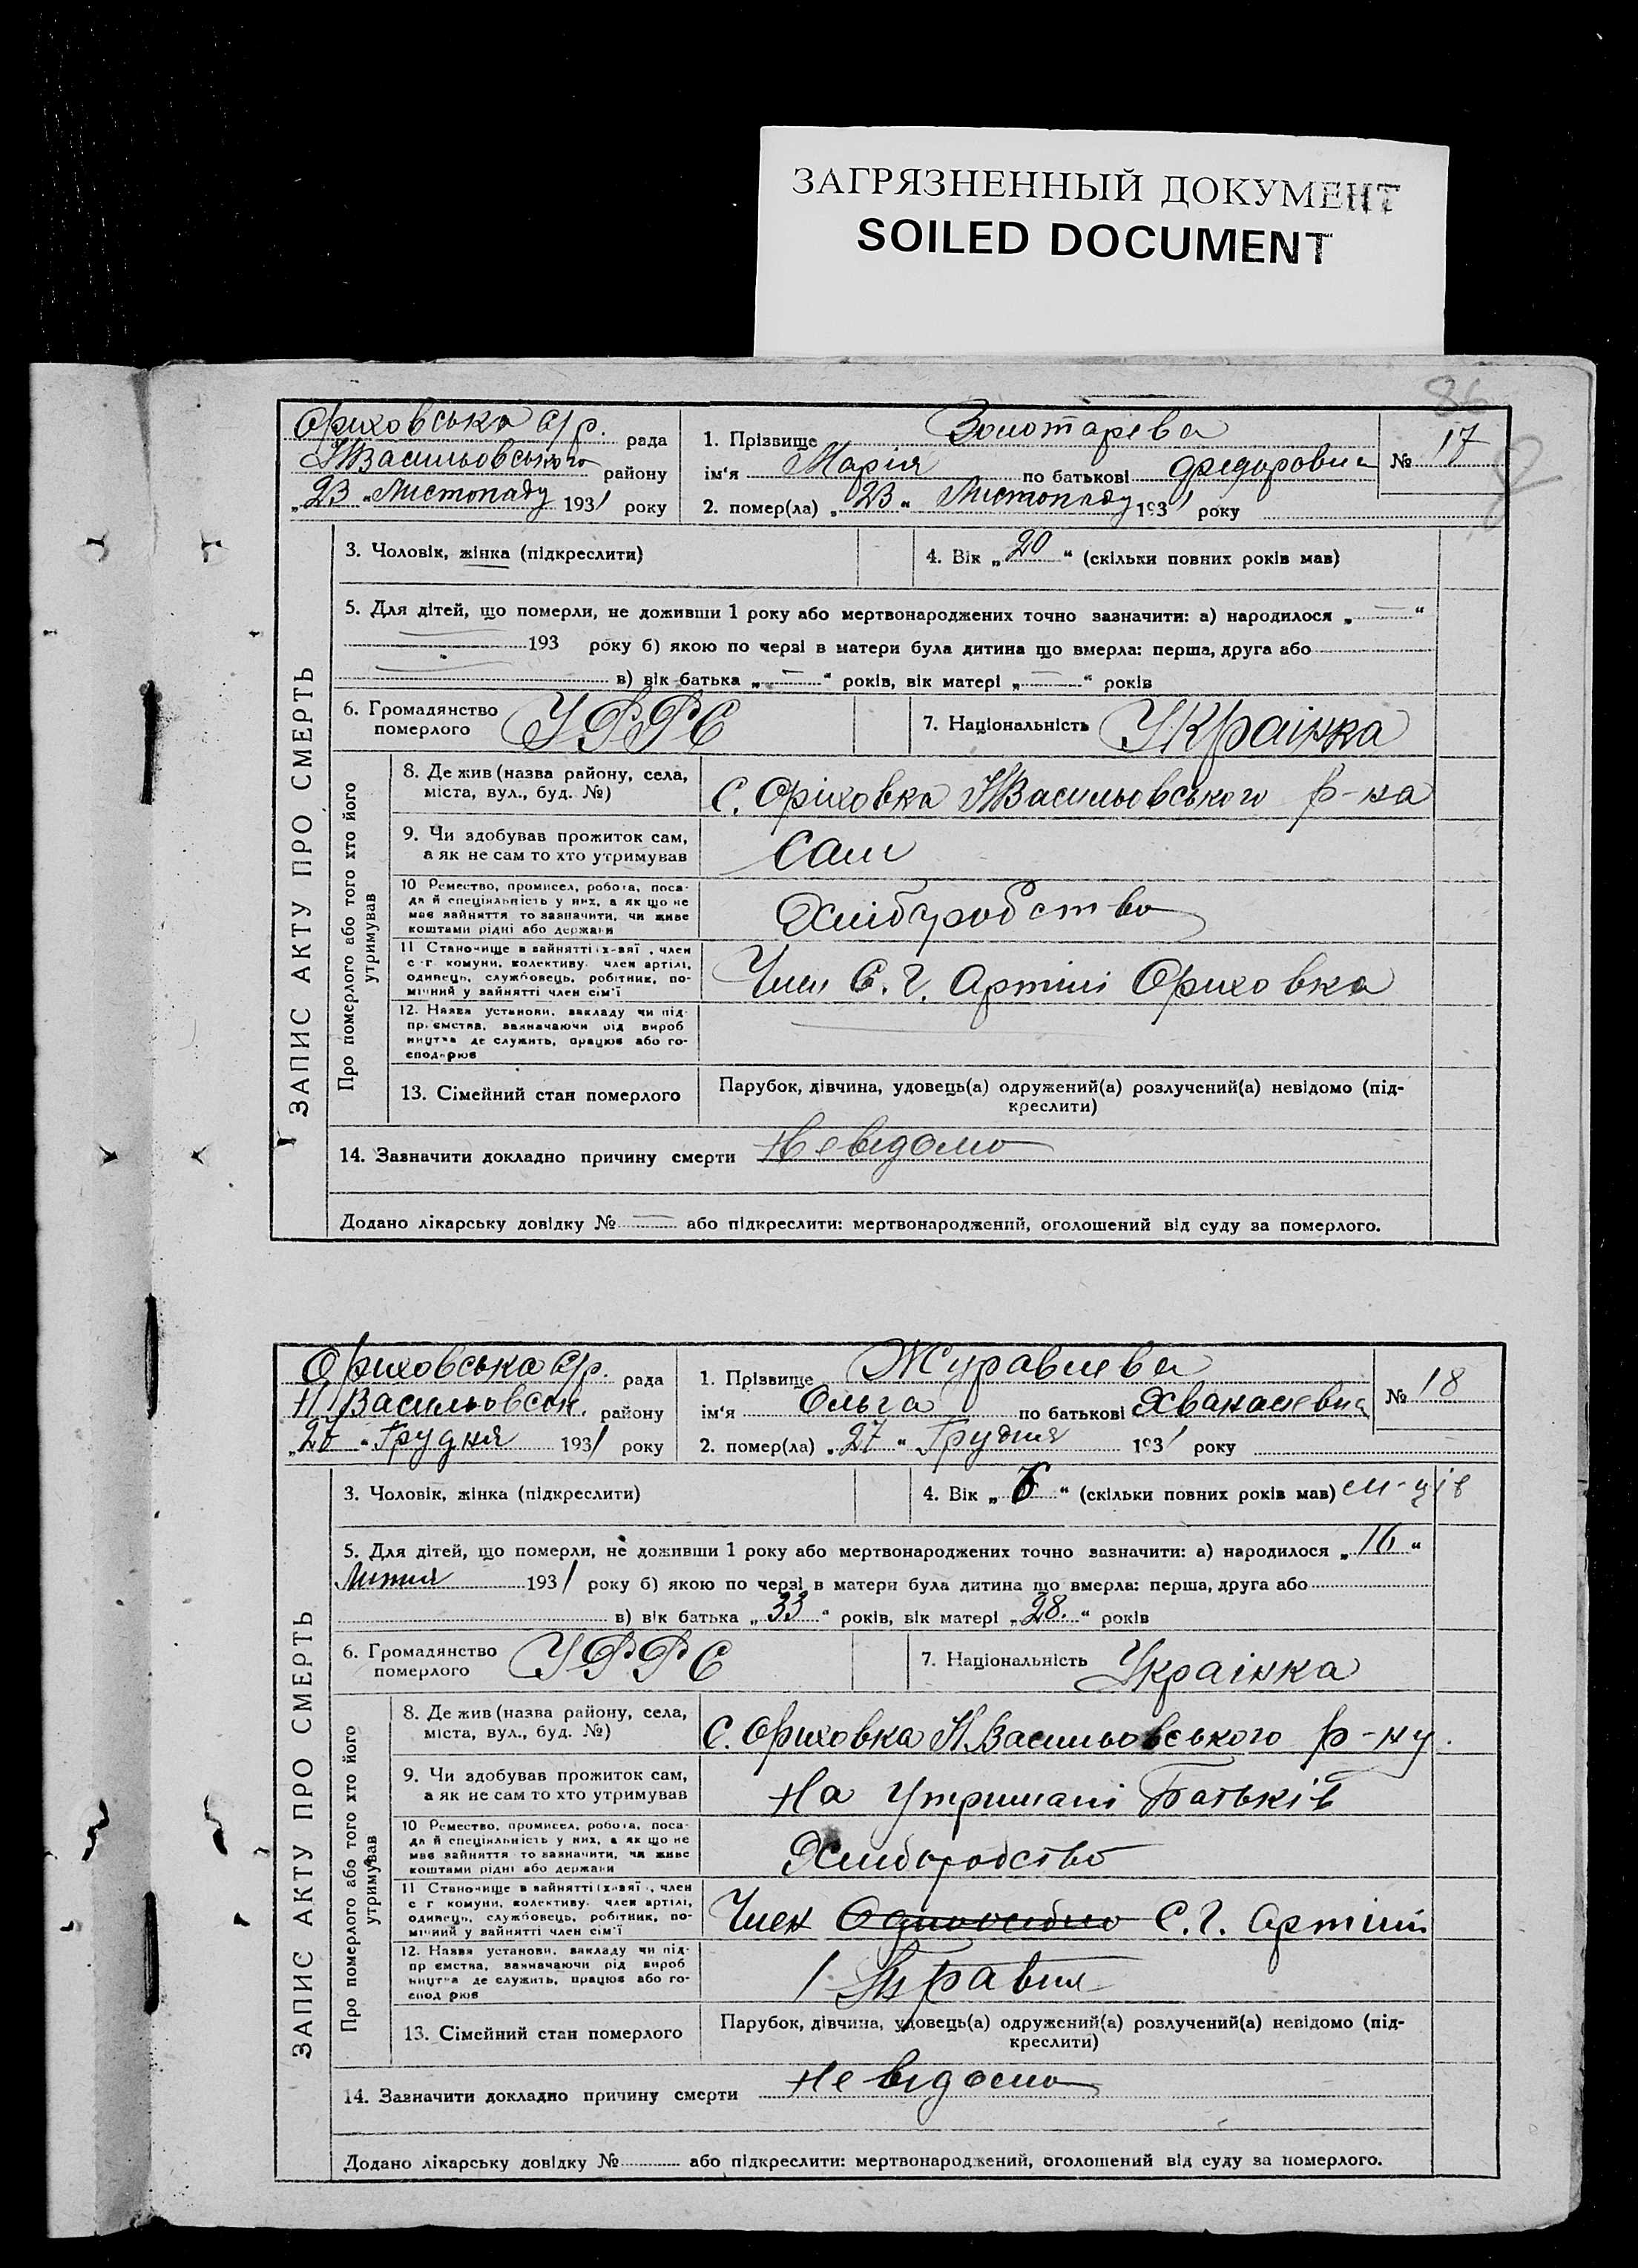 ЗАГРЯЗНЕННЫЙ ДОКУМЕНТ
SOILED DOCUMENT
86
Ориховська с/р. рада
Н Васильовського району
„23 „ Листопаду 1931 року
1. Прізвище Золотарева
ім'я Марія по батькові Федоровна
№ 17
2. помер(ла) „ 23 “ Листопаду 1931 року
ЗАПИС АКТУ ПРО СМЕРТЬ
3. Чоловік, жінка (підкреслити)
4. Вік „ 20 “ (скільки повних років мав)
5. Для дітей, що померли, не доживши 1 року або мертвонароджених точно зазначити: а) народилося „ — “
193 року б) якою по черзі в матери була дитина що вмерла: перша, друга або
в) вік батька „ — “ років, вік матері „ — “ років
6. Громадянство померлого УРРС
7. Національність Украінка
Про померлого або того хто його утримував
8. Де жив (назва району, села, міста, вул., буд. №)
С. Оріховка Н Васильовського р-на
9. Чи здобував прожиток сам, а як не сам то хто утримував
Сам
10 Ремество, промисел, робота, посада й спеціяльність у них, а як що не має зайняття то зазначити, чи живе коштами рідні або держави
Хлібуробство
11 Становище в зайнятті член с-г. комуни, колективу, член артілі, одинець, службовець, робітник, помічний у зайнятті член сім'ї
Член С. Г. Артілі Ориховка
12. Назва установи, закладу чи підприємства, зазначаючи рід виробництва де служить, працює або господарює
13. Сімейний стан померлого
Парубок, дівчина, удовець(а) одружений(а) розлучений(а) невідомо (підкреслити)
14. Зазначити докладно причину смерти Невідомо
Додано лікарську довідку № — або підкреслити: мертвонароджений, оголошений від суду за померлого.
Ориховська с/р. рада
Н Васильовськ. району
„ “ Грудня 1931 року
1. Прізвище Журавлева
ім'я Ольга по батькові Хванасиевна
№ 18
2. помер(ла) „ 27 “ Грудня 1931 року
ЗАПИС АКТУ ПРО СМЕРТЬ
3. Чоловік, жінка (підкреслити)
4. Вік „ “ (скільки повних років мав) м-ців
5. Для дітей, що померли, не доживши 1 року або мертвонароджених точно зазначити: а) народилося „ 16 “
Липня 1931 року б) якою по черзі в матери була дитина що вмерла: перша, друга або
в) вік батька „ 33 “ років, вік матері „ 28. “ років
6. Громадянство померлого УРРС
7. Національність Украінка
Про померлого або того хто його утримував
8. Де жив (назва району, села, міста, вул., буд. №)
С. Ориховка Н. Васильовського р-ну.
9. Чи здобував прожиток сам, а як не сам то хто утримував
На Утримані Батьків
10 Ремество, промисел, робота, посада й спеціяльність у них, а як що не має зайняття то зазначити, чи живе коштами рідні або держави
Хлибородство
11 Становище в зайнятті член с г комуни, колективу, член артілі, одинець, службовець, робітник, помічний у зайнятті член сім'ї
Член Одноосібно С. Г. Артіли
12. Назва установи, закладу чи підприємства, зазначаючи рід виробництва де служить, працює або господарює
1 Травня
13. Сімейний стан померлого
Парубок, дівчина, удовець(а) одружений(а) розлучений(а) невідомо (підкреслити)
14. Зазначити докладно причину смерти Невідомо
Додано лікарську довідку № або підкреслити: мертвонароджений, оголошений від суду за померлого.